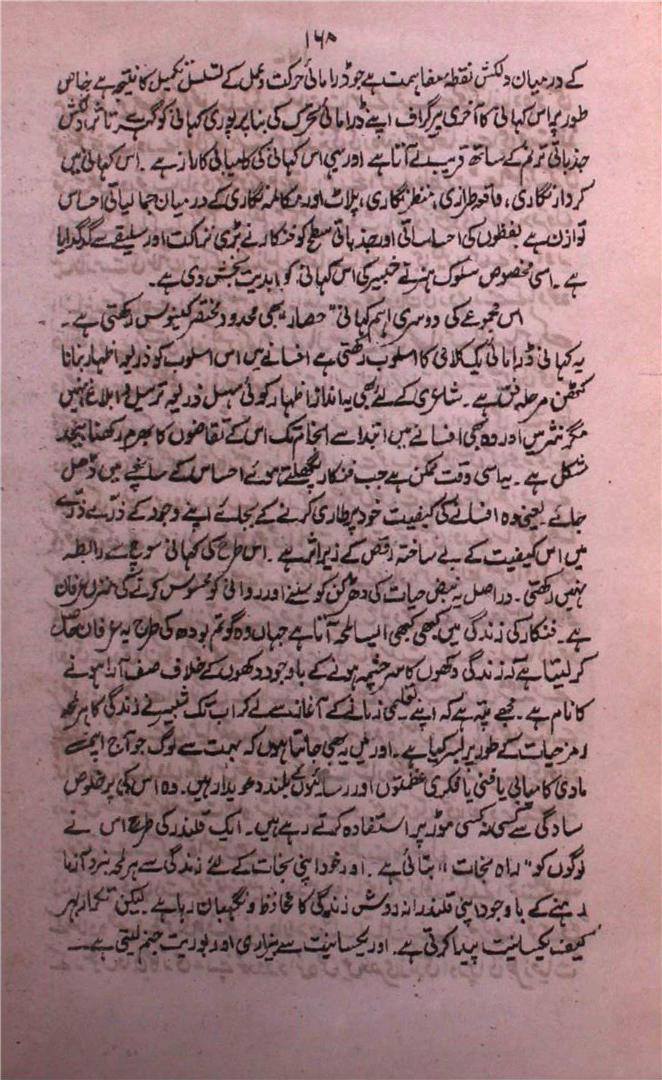 ۱۶۸
کے درمیان دلکش نقطۂ مفاہمت ہے جو ڈرامائی حرکت و عمل کے تسلسل تکمیل کا نتیجہ ہے خاص
طور پر اس کہانی کا آخری پیرگراف اپنے ڈرامائی تحرک کی بنا پر پوری کہانی کو گہرے تاثر، دلکش
جذباتی ترنم کے ساتھ قریب لے آتا ہے اور یہی اس کہانی کی کامیابی کا راز ہے ۔ اس کہانی میں
کردار نگاری، واقعہ طرازی، منظر نگاری، پلاٹ اور مکالمہ نگاری کے درمیان جمالیاتی احساس
توازن ہے لفظوں کی احساساتی اور جذباتی سطح کو فنکار نے بڑی نزاکت اور سلیقے سے گدگدایا
ہے ۔ اسی مخصوص سلوک ہنر نے خنجر کی اس کہانی کو ابدیت بخش دی ہے۔
اس مجموعے کی دوسری اہم کہانی "حصار" بھی محدود مختصر کینوس رکھتی ہے ۔
یہ کہانی ڈرامائی یک کلامی کا اسلوب رکھتی ہے افسانے میں اس اسلوب کو ذریعہ اظہار بنانا
کٹھن مرحلہ فن ہے ۔ شاعری کے لئے بھی یہ انداز اظہار کوئی سہل ذریعہ ترسیل و ابلاغ نہیں
مگر نثر میں اور وہ بھی افسانے میں ابتدا سے انجام تک اس کے تقاضوں کا بھرم رکھنا بیحد
مشکل ہے ۔ یہ اسی وقت ممکن ہے جب فنکار پگھلتے ہوئے احساس کے سانچے میں ڈھل
جائے ۔ یعنی وہ افسانے کی کیفیت خود پر طاری کرنے کے بجائے اپنے وجود کے ذرّے ذرّے
میں اس کیفیت کے بے ساختہ رقص کے زیر اثر ہے ۔ اس طرح کی کہانی سوچ سے رابطہ
نہیں رکھتی ۔ دراصل یہ نبض حیات کی دھڑکن کو سننے اور روانی کو محسوس کرنے کی منزل عرفان
ہے ۔ فنکار کی زندگی میں کبھی کبھی ایسا لمحہ آتا ہے جہاں وہ گوتم بودھ کی طرح یہ عرفان حاصل
کر لیتا ہے کہ زندگی دکھوں کا سرچشمہ ہونے کے باوجود دکھوں کے خلاف صف آرا ہونے
کا نام ہے ۔ مجھے پتہ ہے کہ اپنے تعلیمی زمانے کے آغاز سے لے کر اب تک شبیر نے زندگی کا ہر لمحہ
رمز حیات کے طور پر بسر کیا ہے ۔ اور میں یہ بھی جانتا ہوں کہ بہت سے لوگ جو آج اپنے
مادی کامیابی یا فنی یا فکری عظمتوں اور رسائیوں کے بلند دعویدار ہیں ۔ وہ اس کی پر خلوص
سادگی سے کسی نہ کسی موڑ پر استفادہ کرتے رہے ہیں ۔ ایک قلندر کی طرح اس نے
لوگوں کو "راہ نجات" بتائی ہے ۔ اور خود اپنی نجات کے لئے زندگی سے ہر لمحہ نبرد آزما
رہنے کے باوجود اپنی قلندرانہ روش زندگی کا محافظ و نگہبان رہا ہے ۔ لیکن تکرار ہر
کیف یکسانیت پیدا کرتی ہے ۔ اور یکسانیت سے بیزاری اور بوریت جنم لیتی ہے ۔